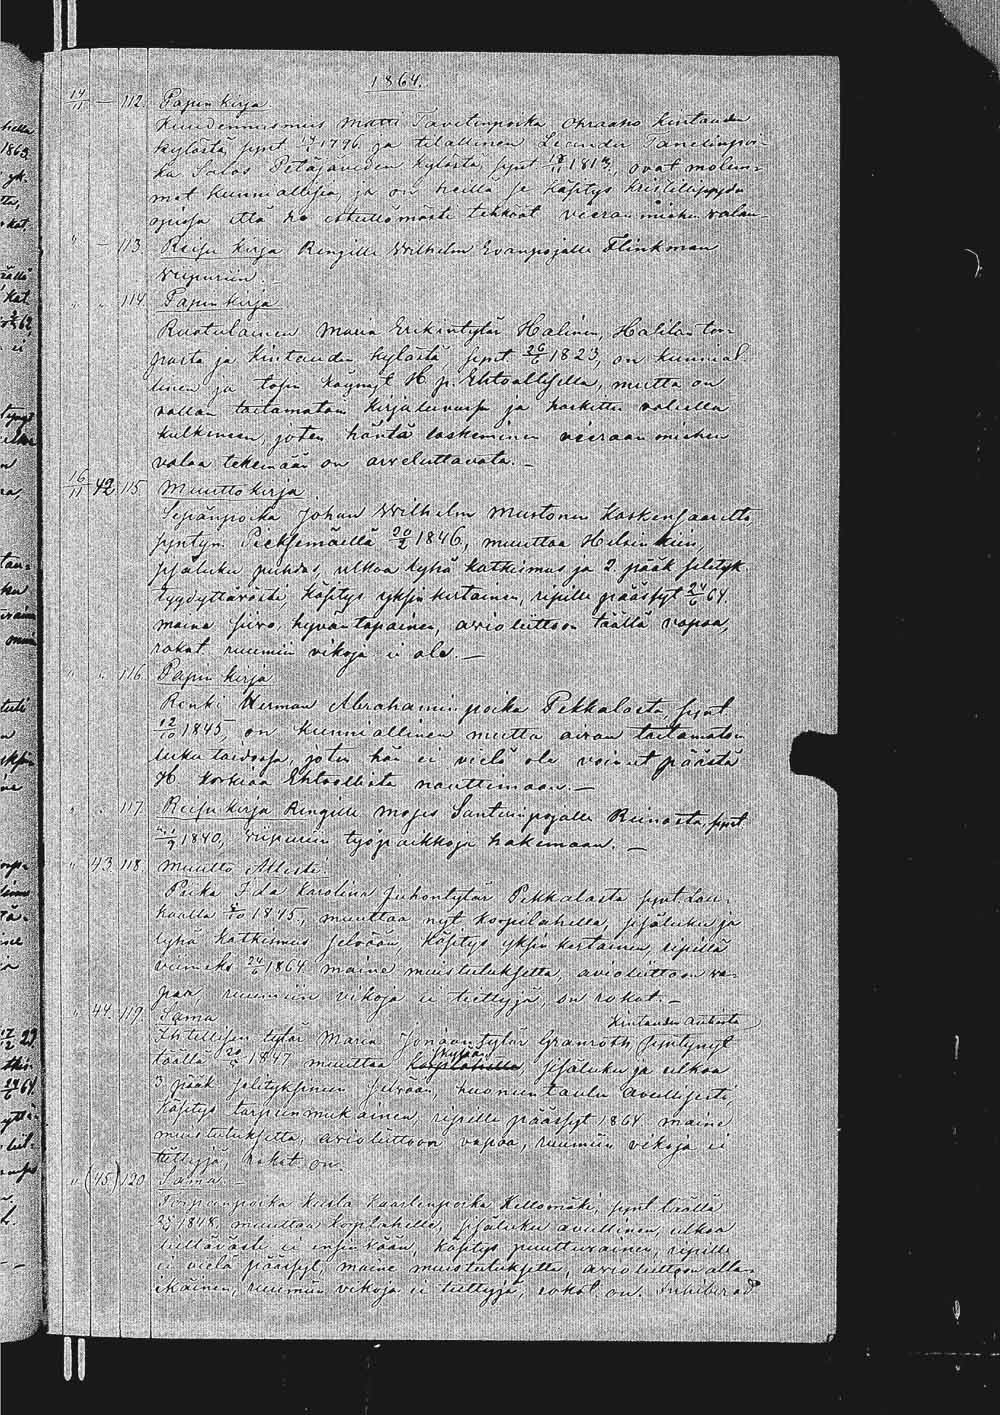 1864.
14/11 — 112. Papin kirja.
Kuudennusmies Matti Taavetinpoika Ohraaho Kintauden
kylästä synt. 1796 ja tilallinen Leander Tanelinpoi-
ka Salos Petäjaveden kylästä, synt. 1813, ovat molem-
mat kunniallisia, ja on heillä se käsitys kristillisyyden
opissa että he esteettömästi tehköät vieraan miehen valan.
" — 113. Reisu kirja Rengille Wilhelm Evanpojalle Flinkman
Wiipuriin.
" " 114. Papin kirja
Ruotulainen Maria Erikintytär Halinen, Halilan tor-
pasta ja Kintauden kylästä, synt. 26/6 1823, on kunnial-
linen ja tosin käynyt H. p. Ehtoollisella, mutta on
vallan taitamatoin kirjaluvussa ja harkitte valialla
kulkeneen, joten häntä laskeminen vieraan miehen
valaa tekemään on arveluttavata. —
16/11 42 115 Muuttokirja.
Sepänpoika Johan Wilhelm Mustonen Koskensaarelta,
syntyn. Pieksemäellä 20/2 1846, muuttaa Helsinkiin,
sisäluku puhdas, ulkoa lyhä katkismus ja 2 pääk. selityk.
tyydyttäväste, käsitys yksinkertainen, ripille päässyt 24/6 64.
maine siivo hyväntapainen, avioliittoon täältä vapaa,
rokot. ruumiin vikoja ei ole. —
" " 116 Papin kirja
Renki Herman Abrahaminpoika Pekkalasta, synt.
12/10 1845, on kunniallinen mutta aivan taitamatoin
luku taidossa, joten hän ei vielä ole voinut päästä
H. korkiaa Ehtoollista nauttimaan. —
" " 117 Reisu kirja Rengille Moses Santerinpojalle Reinosta, synt.
/9 1840, Wiipuriin työpaikkoja hakemaan. —
" 43. 118 Muutto Attesti.
Piika Ida Karolina Juhontytär Pekkalasta synt. Lau-
kaalla /10 1845, muuttaa nyt Korpilahelle, sisäluku ja
lyhä katkismus selvään, käsitys yksinkertainen, ripillä
viimeks 24/6 1864 maine muistutuksetta, avioliittoon va-
paa, ruumiin vikoja ei tiettyjä, on rokot. —
" 44. 119. Sama Kintauden
Intellisen tytär Maria Jonaantytär Granroth, syntynyt
täällä 20/5 1847 muuttaa Korpilahelle, sisäluku ja ulkoa
3 pääk. selityksineen selvään, huoneentaulu avullisesti
käsitys tarpeenmukainen, ripille päässyt 1864 maine
muistutuksetta, avioliittoon vapaa, ruumiin vikoja ei
tiettyjä, rokot. on.
" (45.) 120 Sama. —
Torpanpoika Kusta Kaarlenpoika Kellomäki, synt. täällä
1848, muuttaa Korpilahelle, sisäluku avullinen, ulkoa
luettavasti ei ensinkään, käsitys puutturainen, ripille
ei vielä päässyt, maine muistutuksetta, avioliittoon ala-
ikäinen, ruumiin vikoja ei tiettyjä, rokot. on. Inhiberad